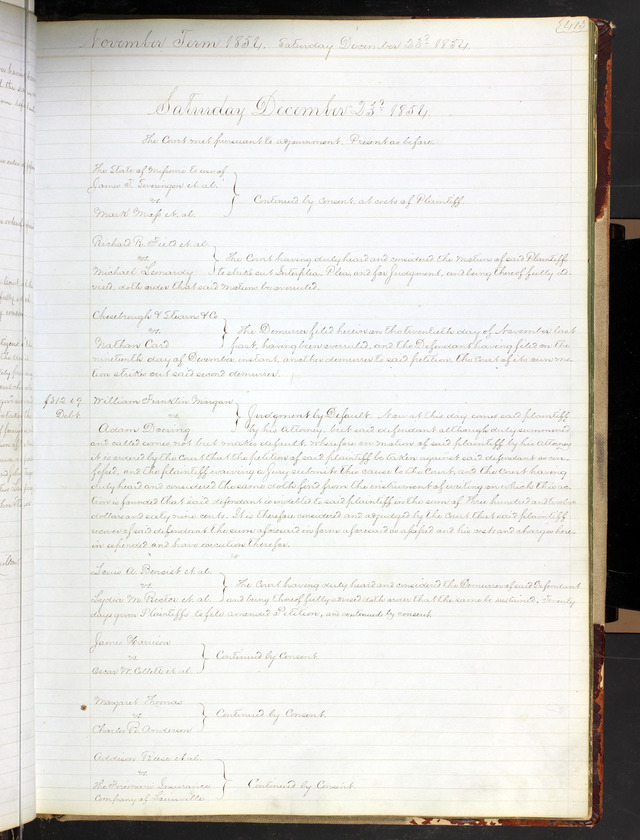 November Term 1854. Saturday December 23d 1854
Saturday December 23d 1854.
The Court met pursuant to adjournment. Present as before.
The State of Missouri to use of
James T. Swearingen et al.
vs
Mark Mass et al.
Continued by consent, at costs of Plaintiff.
Richard R. Field et al.
vs
Michael
The Court having duly heard and considered the motion of said Plaintiff
to strike out Interplea, Plea, and for Judgment, and being thereof fully ad-
vised, doth order that said motion be overruled.
Chesebrough & Stearns & Co
vs
Nathan Card
The Demurrer filed herein on the twentieth day of November last
past, having been overruled, and the Defendant having filed on the
nineteenth day of December instant, another demurrer to said petition, the Court of its own mo-
tion strikes out said second demurrer.
$312 69
Debt
William Franklin Morgan
vs
Adam Doering
Judgment by Default. Now at this day comes said plaintiff
by his Attorney, but said defendant although duly summoned
and called comes not but makes default. Wherefore on motion of said plaintiff by his Attorney
it is ordered by the Court that the petition of said plaintiff be taken against said defendant as con-
fessed, and the plaintiff waiving a Jury submits the cause to the Court, and the Court having
duly heard and considered the same doth find from the instrument of writing on which this ac-
tion is founded that said defendant is indebted to said plaintiff in the sum of Three hundred and twelve
dollars and sixty nine cents. It is therefore considered and adjudged by the Court that said plaintiff
recover of said defendant the sum aforesaid in form aforesaid as assessed and his costs and charges here-
in expended and have execution therefor.
Louis A. Benoist et al.
vs
Lydia M. Rector et al.
The Court having duly heard and considered the Demurrer of said Defendant
and being thereof fully advised doth order that the same be sustained. Twenty
days given Plaintiffs to file amended Petition, and continued by consent.
James Harrison
vs
Oscar W. Collet et al.
Continued by Consent.
Margaret Thomas
vs
Charles R. Anderson
Continued by Consent.
Addison Reese et al.
vs
The Firemen's Insurance
Company of Louisville
Continued by Consent.